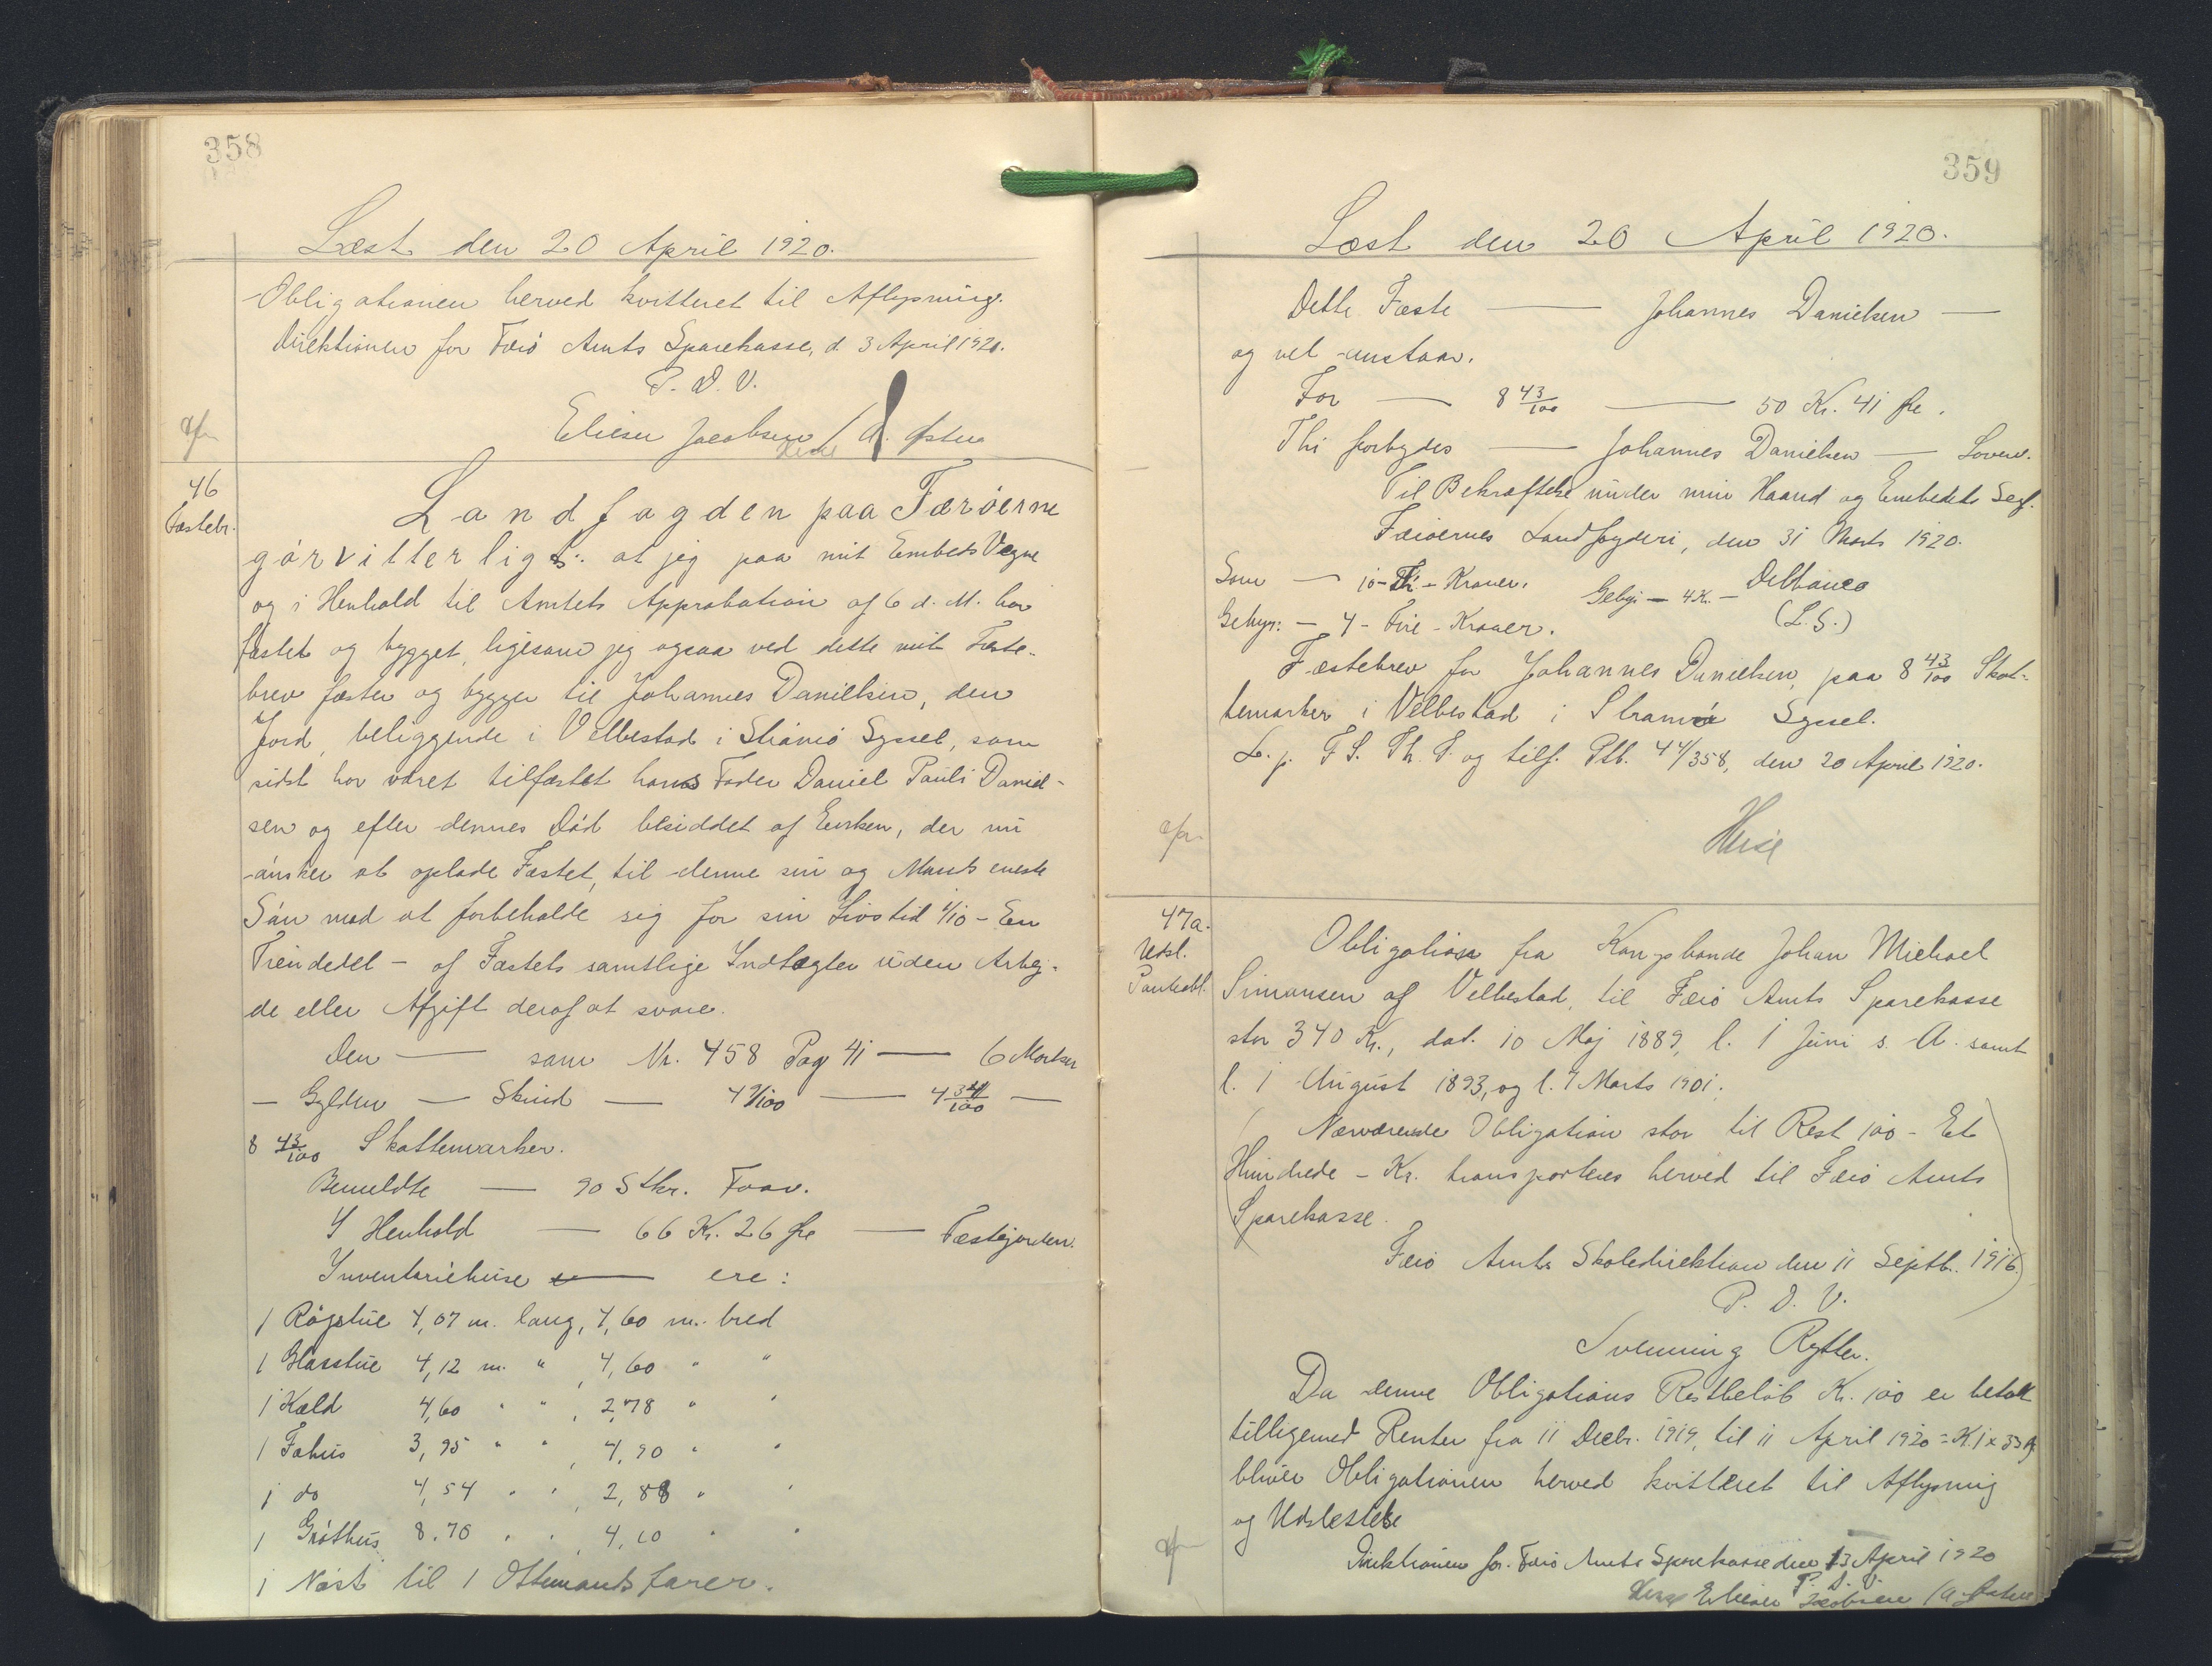 358
Læst den 20 April 1920.
Obligationen herved kvitteret til Aflysning.
Direktionen for Færö Amts Sparekasse, d. 3 April 1920.
P. D. V.
Elieser Jacobsen / A. Østen
46
Fæstebr.
Landfogden paa Færöerne
gör vitterligt: at jeg paa mit Embeds Vegne
og i Henhold til Amtets Approbation af 6 d. M. har
fæstet og bygget, ligesom jeg ogsaa ved dette mit Fæste-
brev fæster og bygger til Johannes Danielsen, den
Jord, beliggende i Velbestad i Strömö Syssel, som
sidst har været tilfæstet hans Fader Daniel Pauli Daniel-
sen og efter dennes Död besiddet af Enken, der nu
önsker at oplade Fæstet, til denne sin og Mands eneste
Sön mod at forbeholde sig for sin Livstid 1/10 - En
Tiendedel - af Fæstets samtlige Indtægter uden Arbej-
de eller Afgift deraf at svare.
Den — som Nr. 458 Pag 41 — 6 Marker
— Gylden — Skind — 4 9/100 — 4 34/100 —
8 43/100 Skattemarker.
Bemeldte — 90 Stkr. Faar.
I Henhold — 66 Kr. 26 Øre — Fæstejorden.
Inventariehuse — ere:
1 Rögstue 4,07 m. lang, 4,60 m. bred
1 Glasstue 4,12 m. " , 4,60 " "
1 Kæld 4,60 " " , 2,78 " "
1 Fahus 3,95 " " , 4,90 " "
1 do 4,54 " " , 2,88 " "
1 Gröthus 8.70 " " , 4,10 " "
1 Nöst til 1 Ottemandsfarer.
359
Læst den 20 April 1920.
Dette Fæste — Johannes Danielsen —
og vel umstaar.
For — 8 43/100 — 50 Kr. 41 Øre.
Thi forbydes — Johannes Danielsen — Loven.
Til Bekræftelse under min Haand og Embedets Segl.
Færöernes Landfogderi, den 31 Marts 1920.
Som — 10 - Ti - Kroner. Gebyr — 4 K. — Delbanco
Gebyr: — 4 - Fire - Kroner. (L.S.)
Fæstebrev for Johannes Danielsen, paa 8 43/100 Skat-
temarker i Velbestad i Strömö Syssel.
L. p. F. S. Th. T. og tilf. Ptb. 44/358, den 20 April 1920.
Heise
47a.
Udsl.
Panteobl.
Obligation fra Kongsbonde Johan Michael
Simonsen af Velbestad, til Færö Amts Sparekasse
stor 340 Kr., dat. 10 Maj 1889, l. 1 Juni s. A. samt
l. 1 August 1893, og l. 7 Marts 1901.
Nærværende Obligation stor til Rest 100 - Et
Hundrede - Kr. transporteres herved til Færö Amts
Sparekasse.
Færö Amts Skoledirektion den 11 Septb. 1916.
P. D. V.
Svenning Rytter.
Da denne Obligations Restbelöb Kr. 100 er betalt
tilligemed Renter fra 11 Decbr. 1919, til 11 April 1920 = K. 1 x 33 Ø.
bliver Obligationen herved kvitteret til Aflysning
og Udslettelse
Direktionen for Færö Amts Sparekasse den 13 April 1920
P. D. V.
Heise Elieser Jacobsen / A. Østen